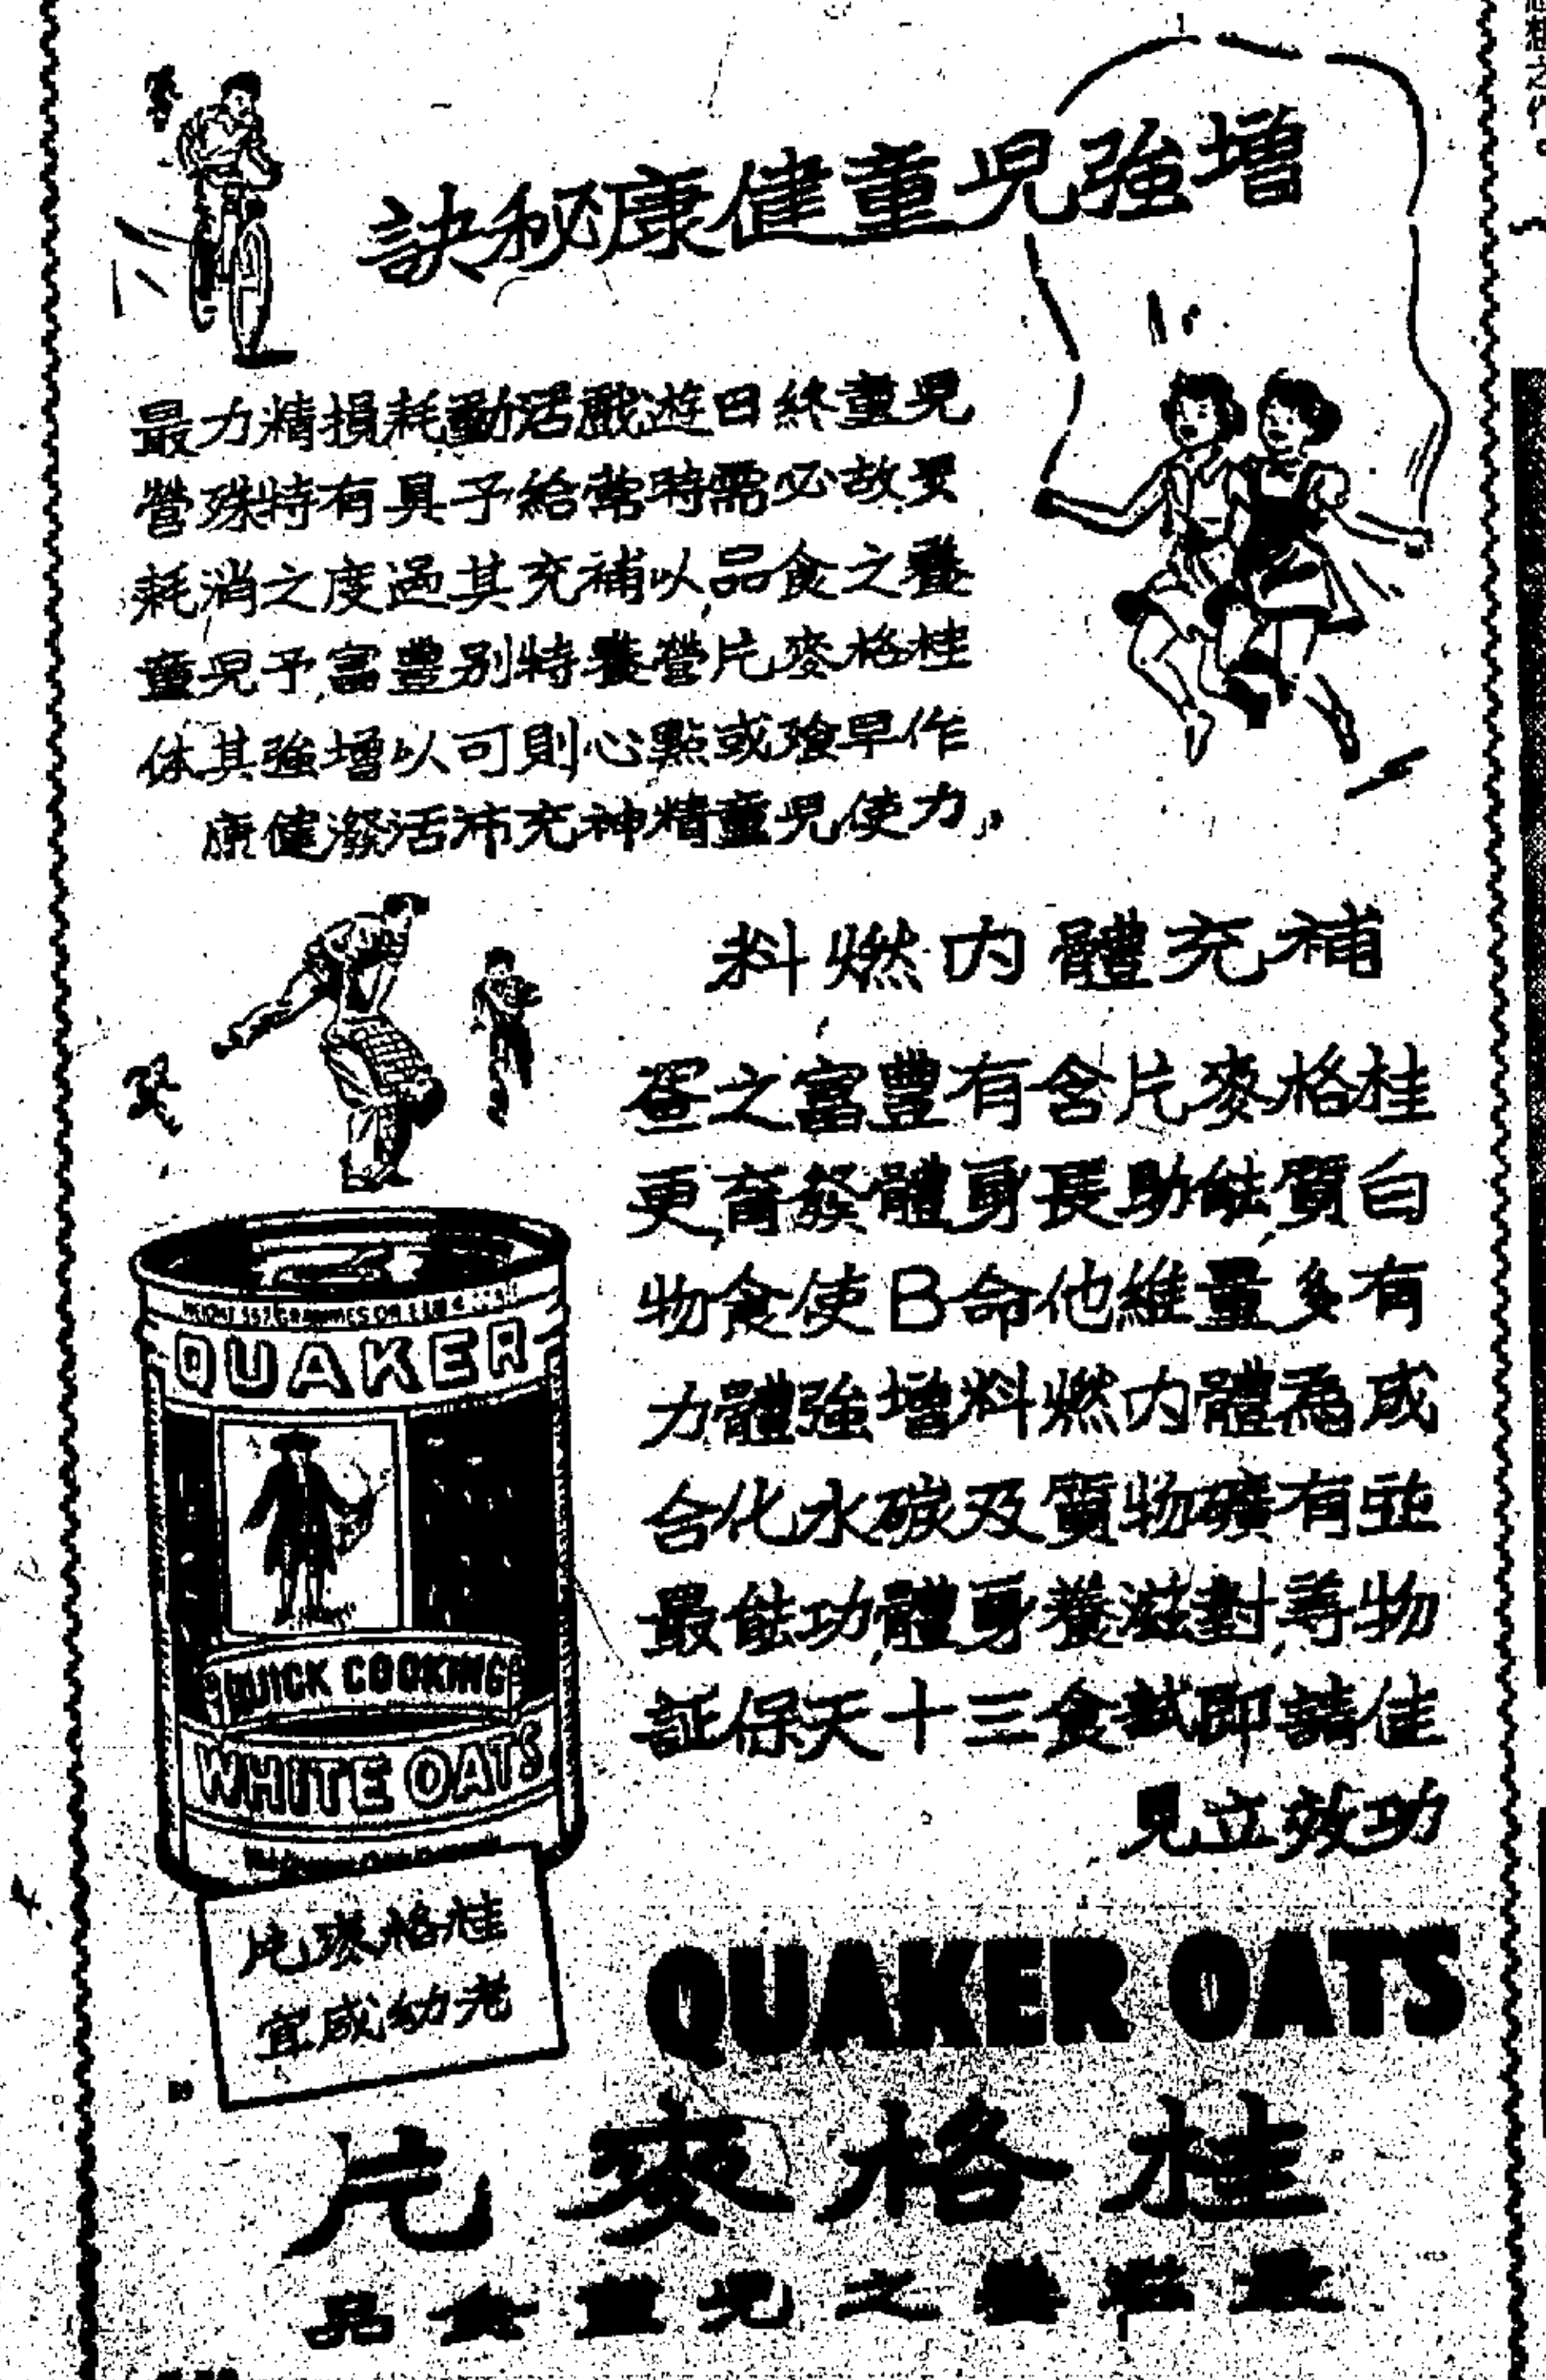 增強兒童健康秘訣
兒童終日遊戲活動耗損精力最
要故必需時常給予具有特殊營
養之食品以補充其過度之消耗
桂格麥片營養特別豐富予兒童
作早飱或點心則可以增強其体
力使兒童精神充沛活潑健康
補充體内燃料
桂格麥片含有豐富之蛋
白質能助長身體發育更
有多量維他命B使食物
成為體内燃料增強體力
並有礦物質及碳水化合
物等對滋養身體功能最
佳請即試食三十天保証
功效立見
QUAKER
QUICK COOKING
WHITE OATS
桂格麥片
老幼咸宜
QUAKER OATS
桂格麥片
最滋養之兒童食品